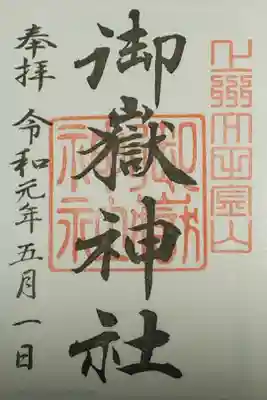 御嶽神社
御嶽神社
奉拝 令和元年五月一日